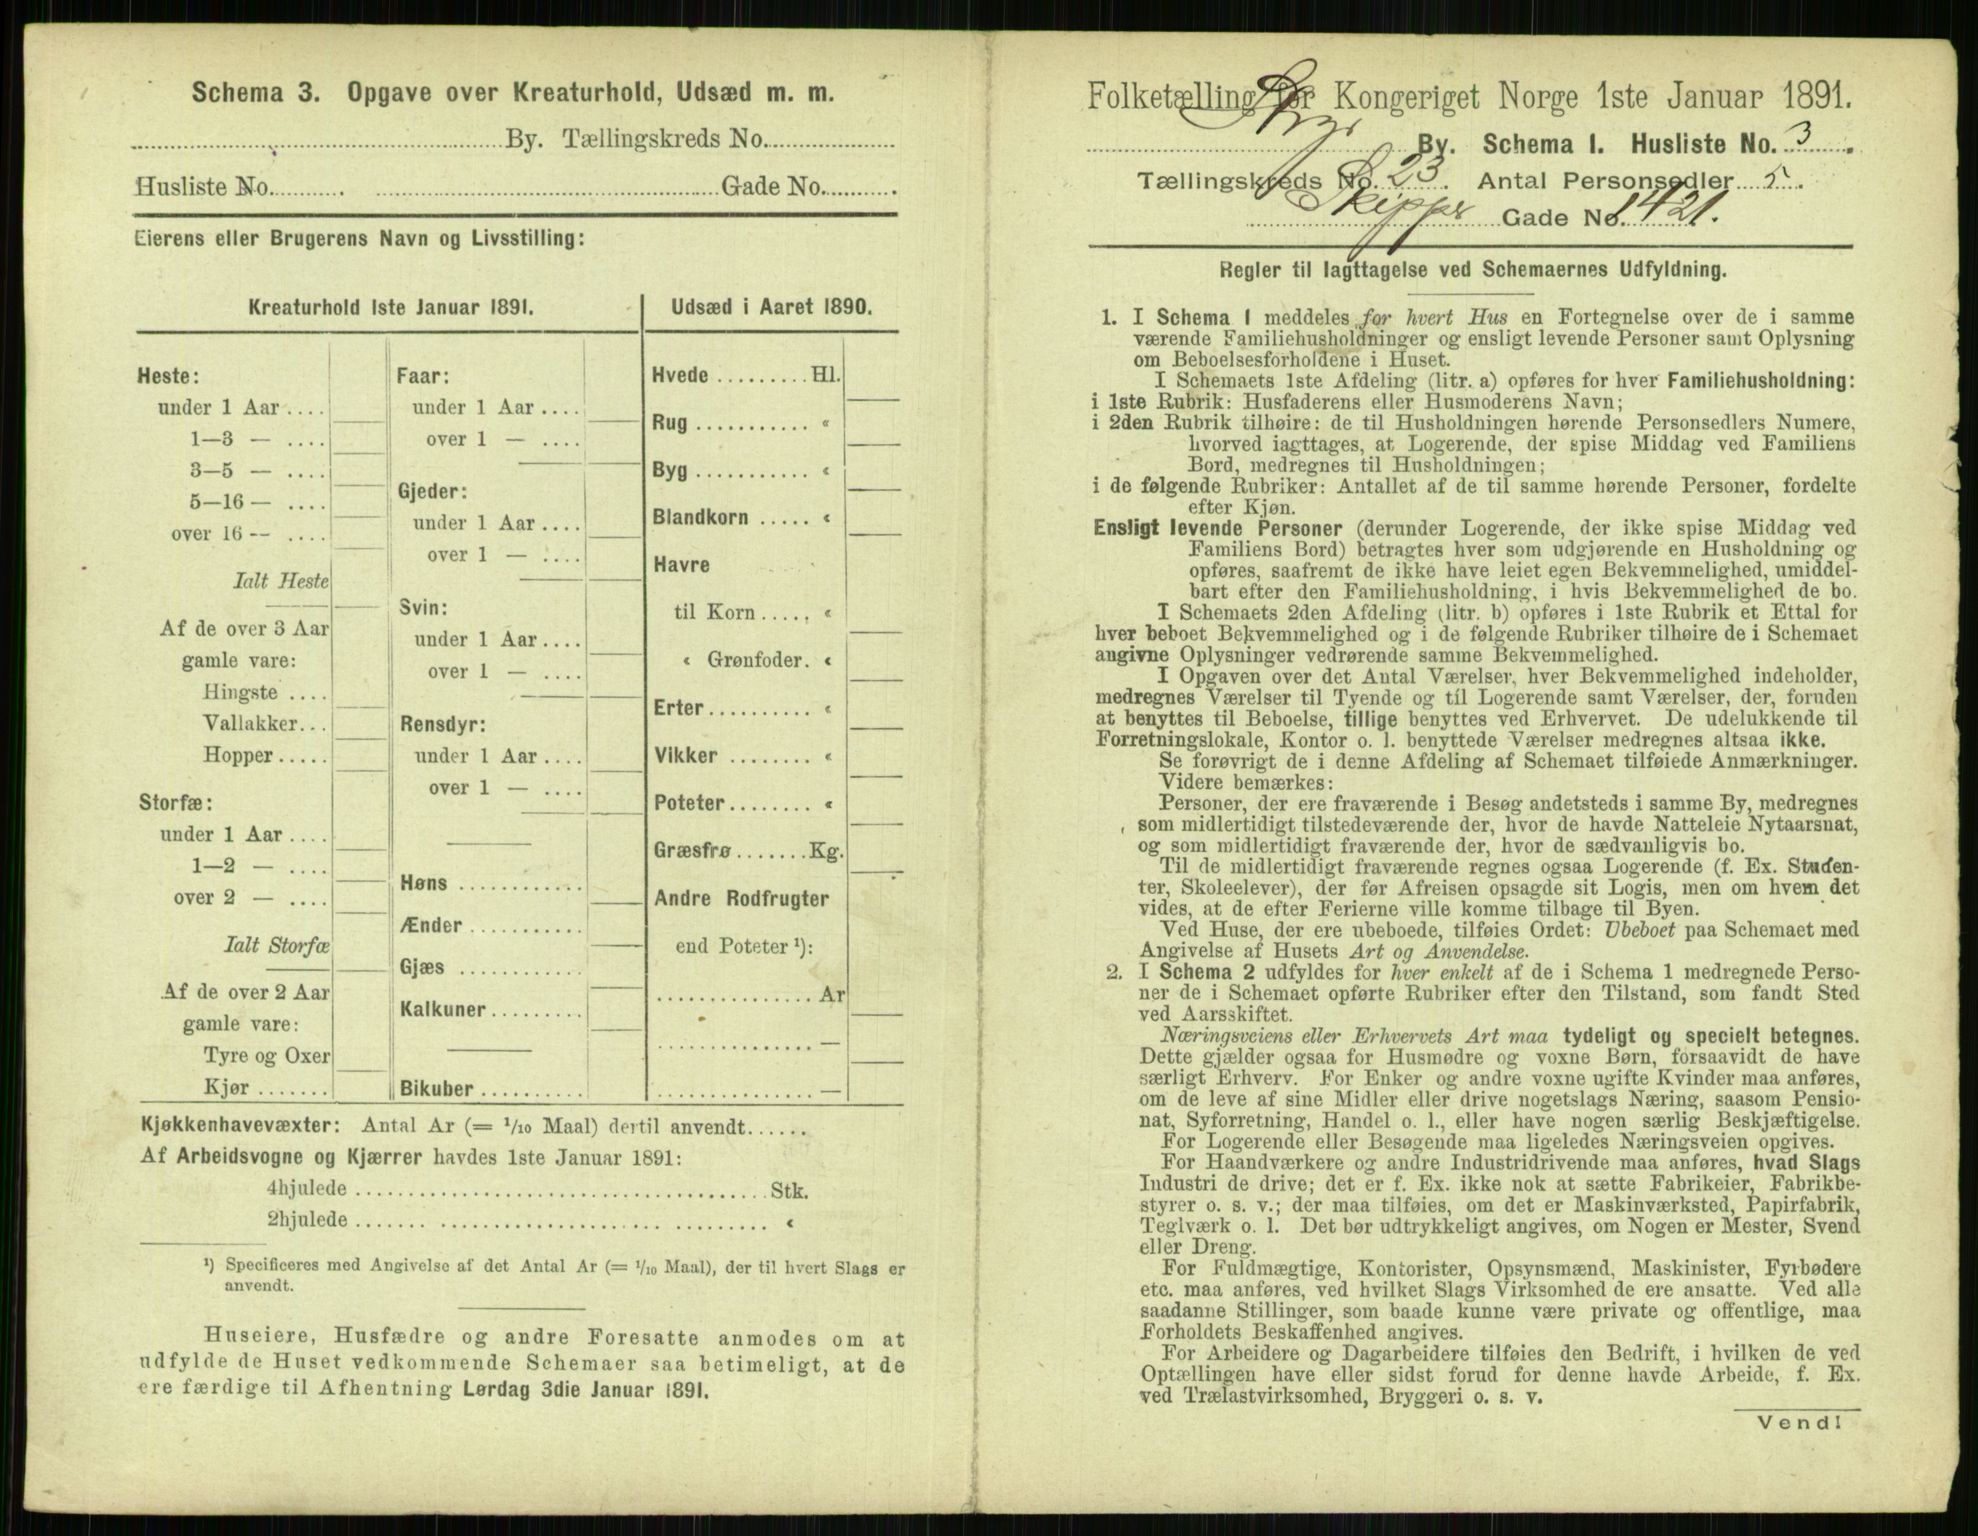 Schema 3. Opgave over Kreaturhold, Udsæd m. m.
By. Tællingskreds No.
Husliste No. Gade No.
Eierens eller Brugerens Navn og Livsstilling:
Kreaturhold 1ste Januar 1891.
Heste:
under 1 Aar ....
1—3 — ....
3—5 — ....
5—16 — ....
over 16 — ....
Ialt Heste
Af de over 3 Aar
gamle vare:
Hingste ....
Vallakker...
Hopper.....
Storfæ:
under 1 Aar ....
1—2 — ....
over 2 — ....
Ialt Storfæ
Af de over 2 Aar
gamle vare:
Tyre og Oxer
Kjør .......
Faar:
under 1 Aar ....
over 1 — ....
Gjeder:
under 1 Aar ....
over 1 — ....
Svin:
under 1 Aar ....
over 1 — ....
Rensdyr:
under 1 Aar ....
over 1 — ....
Høns ............
Ænder ...........
Gjæs ............
Kalkuner.........
Bikuber ..........
Udsæd i Aaret 1890.
Hvede .........Hl.
Rug ........... «
Byg ........... «
Blandkorn ..... «
Havre
til Korn ..... «
« Grønfoder. «
Erter.......... «
Vikker ........ «
Poteter........ «
Græsfrø.......Kg.
Andre Rodfrugter
end Poteter ¹):
............... Ar
............... —
............... —
Kjøkkenhavevæxter: Antal Ar (= 1/10 Maal) dertil anvendt......
Af Arbeidsvogne og Kjærrer havdes 1ste Januar 1891:
4hjulede ........................................Stk.
2hjulede ........................................ «
¹) Specificeres med Angivelse af det Antal Ar (= 1/10 Maal), der til hvert Slags er
anvendt.
Huseiere, Husfædre og andre Foresatte anmodes om at
udfylde de Huset vedkommende Schemaer saa betimeligt, at de
ere færdige til Afhentning Lørdag 3die Januar 1891.
Folketælling for Kongeriget Norge 1ste Januar 1891.
By. Schema 1. Husliste No. 3.
Tællingskreds No. 23. Antal Personsedler 5.
Skipper Gade No. 1421.
Regler til Iagttagelse ved Schemaernes Udfyldning.
1. I Schema 1 meddeles for hvert Hus en Fortegnelse over de i samme
værende Familiehusholdninger og ensligt levende Personer samt Oplysning
om Beboelsesforholdene i Huset.
I Schemaets 1ste Afdeling (litr. a) opføres for hver Familiehusholdning:
i 1ste Rubrik: Husfaderens eller Husmoderens Navn;
i 2den Rubrik tilhøire: de til Husholdningen hørende Personsedlers Numere,
hvorved iagttages, at Logerende, der spise Middag ved Familiens
Bord, medregnes til Husholdningen;
i de følgende Rubriker: Antallet af de til samme hørende Personer, fordelte
efter Kjøn.
Ensligt levende Personer (derunder Logerende, der ikke spise Middag ved
Familiens Bord) betragtes hver som udgjørende en Husholdning og
opføres, saafremt de ikke have leiet egen Bekvemmelighed, umiddel-
bart efter den Familiehusholdning, i hvis Bekvemmelighed de bo.
I Schemaets 2den Afdeling (litr. b) opføres i 1ste Rubrik et Ettal for
hver beboet Bekvemmelighed og i de følgende Rubriker tilhøire de i Schemaet
angivne Oplysninger vedrørende samme Bekvemmelighed.
I Opgaven over det Antal Værelser, hver Bekvemmelighed indeholder,
medregnes Værelser til Tyende og til Logerende samt Værelser, der, foruden
at benyttes til Beboelse, tillige benyttes ved Erhvervet. De udelukkende til
Forretningslokale, Kontor o. l. benyttede Værelser medregnes altsaa ikke.
Se forøvrigt de i denne Afdeling af Schemaet tilføiede Anmærkninger.
Videre bemærkes:
Personer, der ere fraværende i Besøg andetsteds i samme By, medregnes
som midlertidigt tilstedeværende der, hvor de havde Natteleie Nytaarsnat,
og som midlertidigt fraværende der, hvor de sædvanligvis bo.
Til de midlertidigt fraværende regnes ogsaa Logerende (f. Ex. Studen-
ter, Skoleelever), der før Afreisen opsagde sit Logis, men om hvem det
vides, at de efter Ferierne ville komme tilbage til Byen.
Ved Huse, der ere ubeboede, tilføies Ordet: Ubeboet paa Schemaet med
Angivelse af Husets Art og Anvendelse.
2. I Schema 2 udfyldes for hver enkelt af de i Schema 1 medregnede Perso-
ner de i Schemaet opførte Rubriker efter den Tilstand, som fandt Sted
ved Aarsskiftet.
Næringsveiens eller Erhvervets Art maa tydeligt og specielt betegnes.
Dette gjælder ogsaa for Husmødre og voxne Børn, forsaavidt de have
særligt Erhverv. For Enker og andre voxne ugifte Kvinder maa anføres,
om de leve af sine Midler eller drive nogetslags Næring, saasom Pensio-
nat, Syforretning, Handel o. l., eller have nogen særlig Beskjæftigelse.
For Logerende eller Besøgende maa ligeledes Næringsveien opgives.
For Haandværkere og andre Industridrivende maa anføres, hvad Slags
Industri de drive; det er f. Ex. ikke nok at sætte Fabrikeier, Fabrikbe-
styrer o. s. v.; der maa tilføies, om det er Maskinværksted, Papirfabrik,
Teglværk o. l. Det bør udtrykkeligt angives, om Nogen er Mester, Svend
eller Dreng.
For Fuldmægtige, Kontorister, Opsynsmænd, Maskinister, Fyrbødere
etc. maa anføres, ved hvilket Slags Virksomhed de ere ansatte. Ved alle
saadanne Stillinger, som baade kunne være private og offentlige, maa
Forholdets Beskaffenhed angives.
For Arbeidere og Dagarbeidere tilføies den Bedrift, i hvilken de ved
Optællingen have eller sidst forud for denne havde Arbeide, f. Ex.
ved Trælastvirksomhed, Bryggeri o. s. v.
Vend!